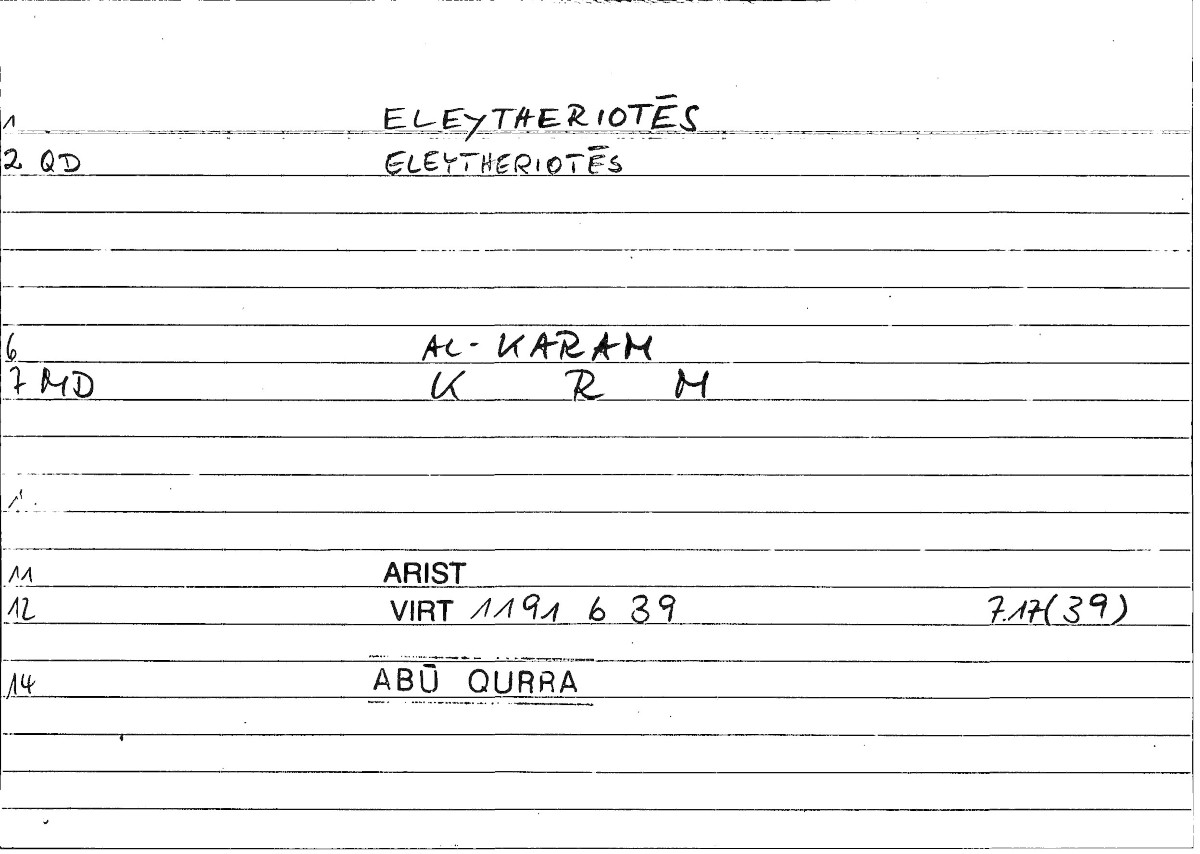 1 ELEYTHERIOTĒS
2 QD ELEYTHERIOTĒS
6 AL-KARAM
7 MD K R M
11 ARIST
12 VIRT 1191 6 39 7.17(39)
14 ABŪ QURRA